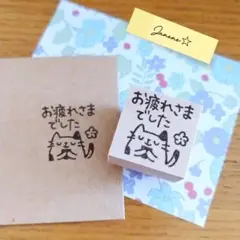 Janene☆
お疲れさま
でした
お疲れさま
でした